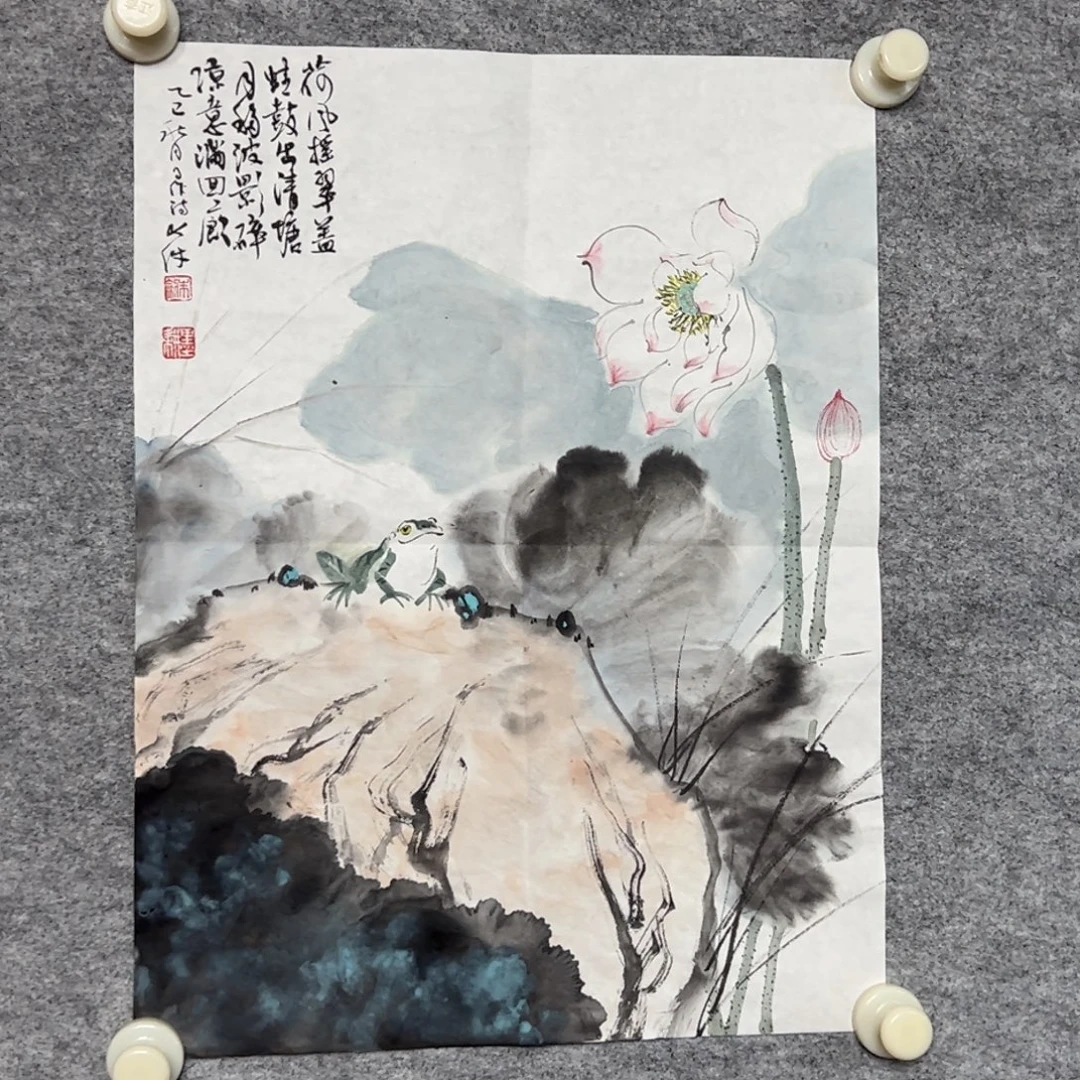 荷风摇翠盖
蛙鼓出清塘
月移波影碎
凉意满回廊
乙巳秋月